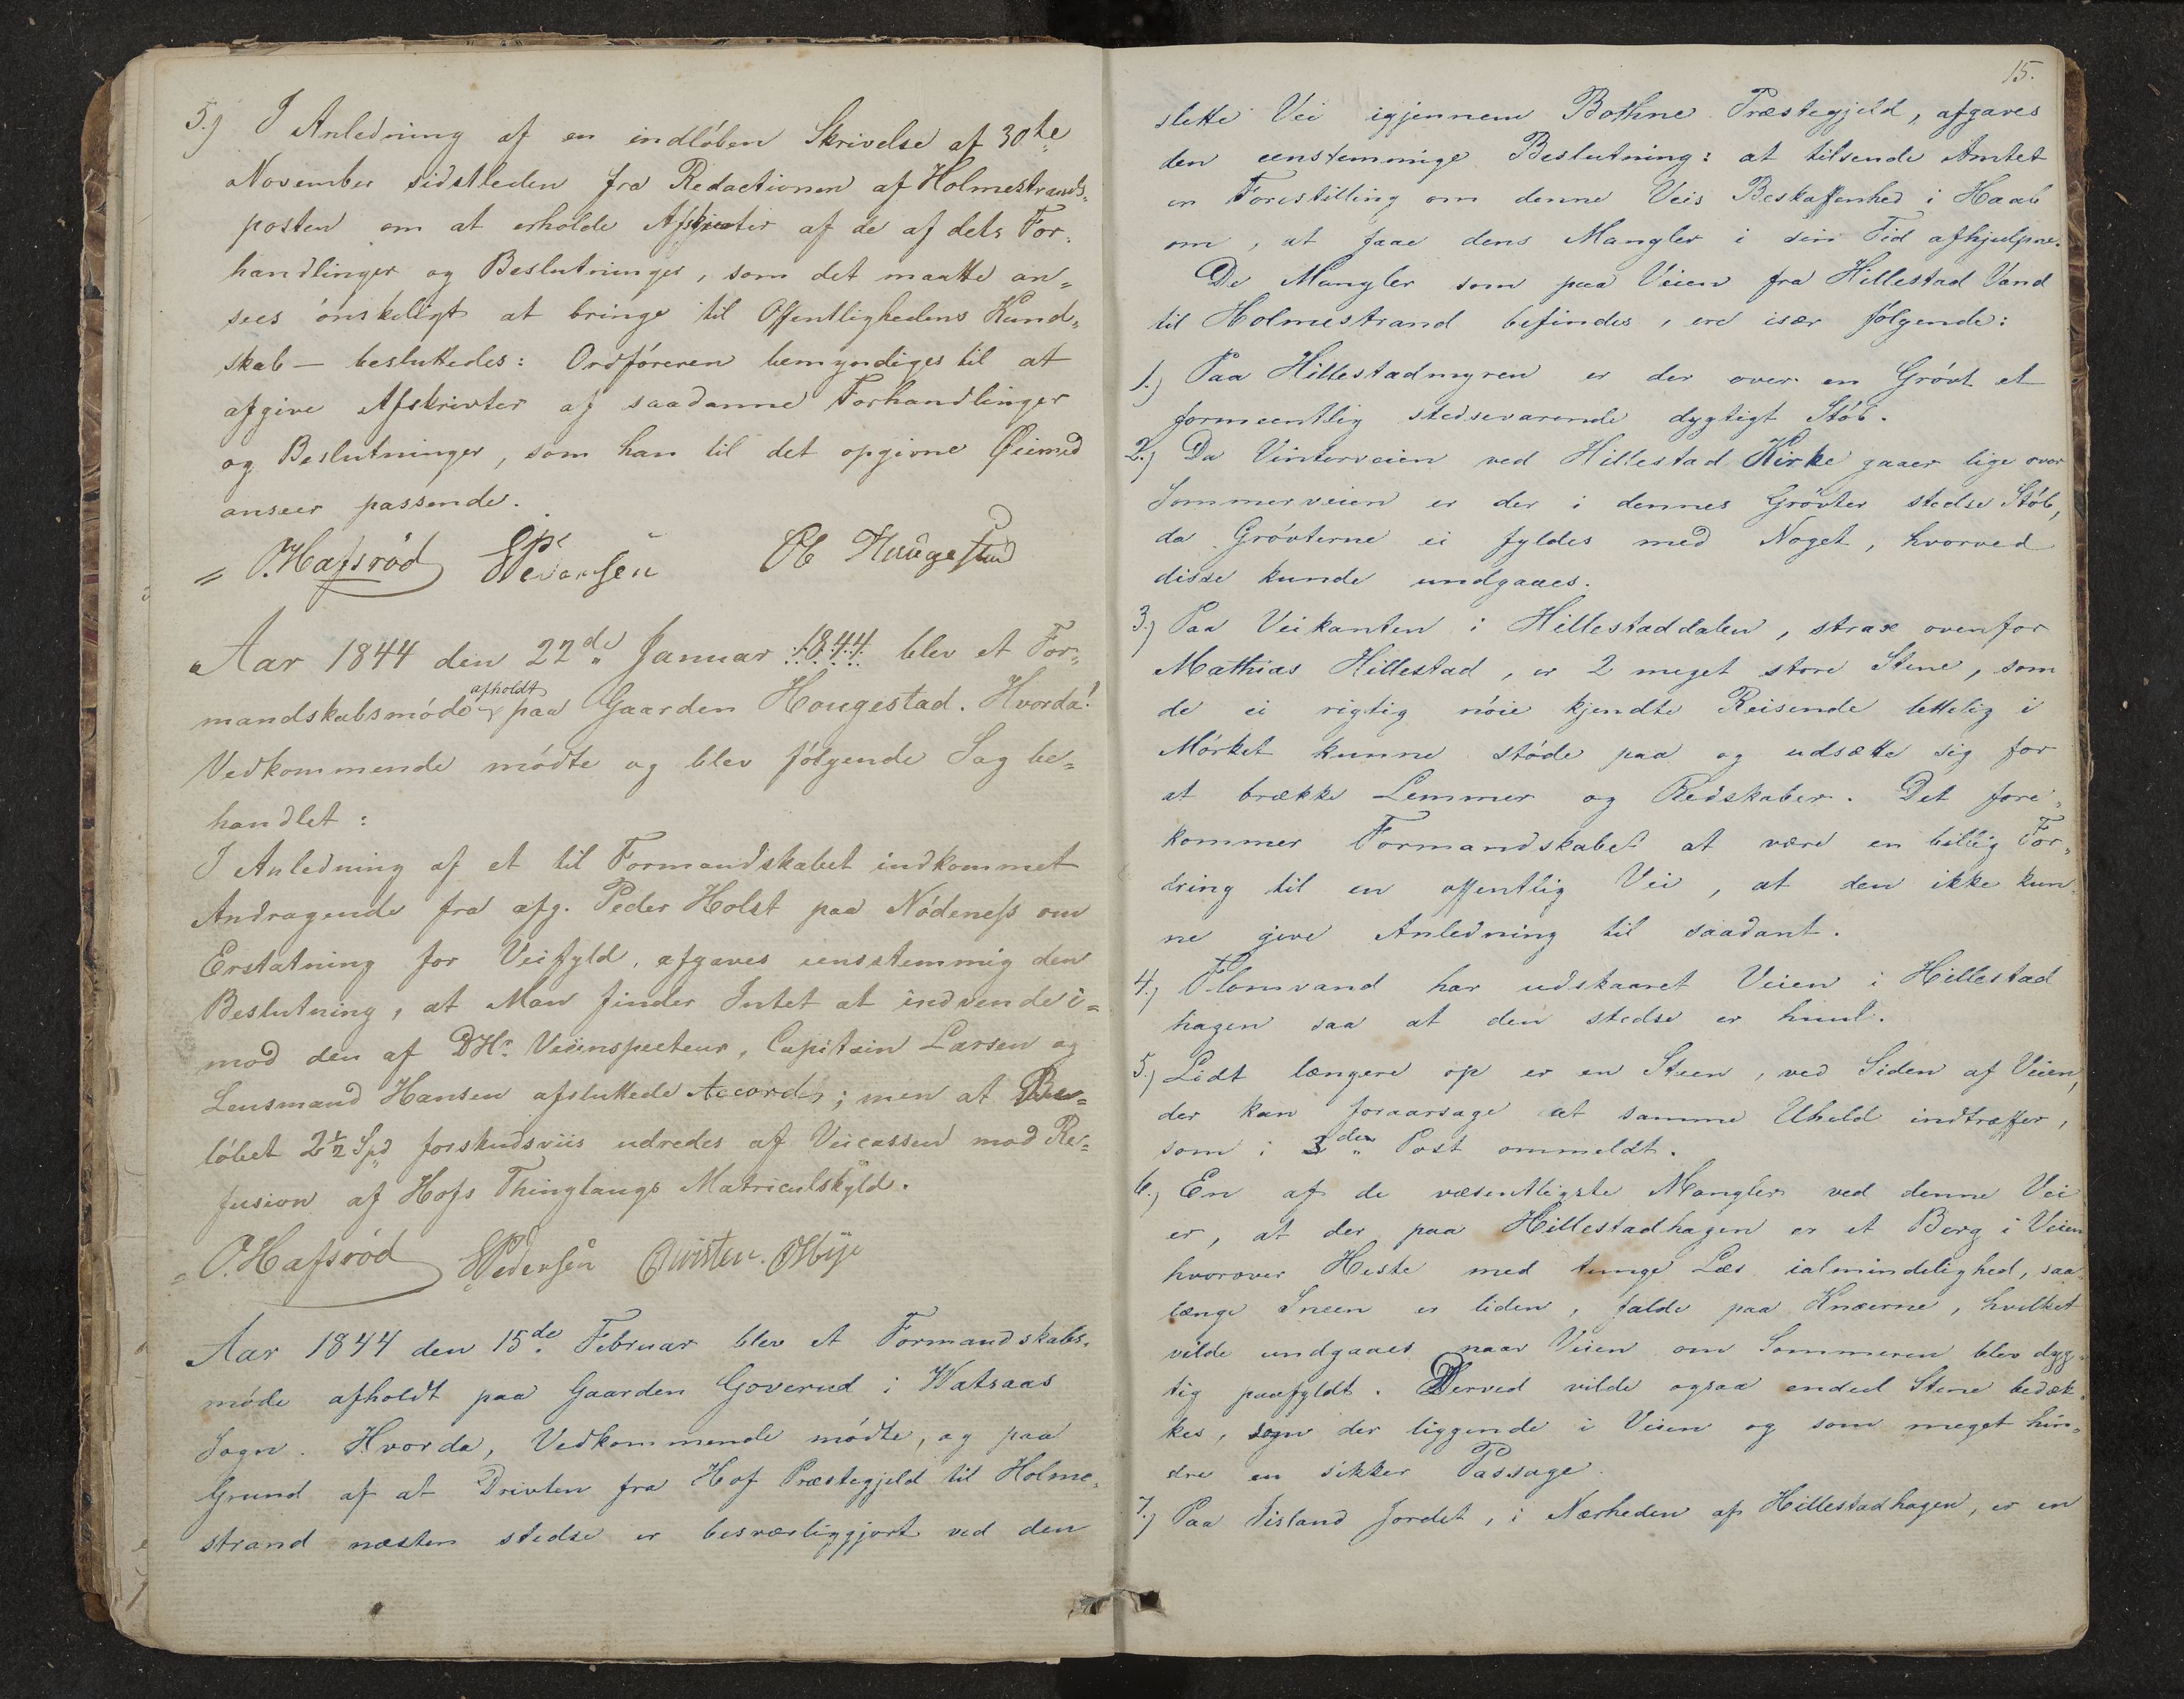 5.) I Anledning af en indløben Skrivelse af 30te
November sidstleden fra Redactionen af Holmestrands-
posten om at erholde Afskrivter af de af dets For-
handlinger og Beslutninger, som det maatte an-
sees ønskeligt at bringe til Offentlighedens Kund-
skab — besluttedes: Ordføreren bemyndiges til at
afgive Afskrivter af saadanne Forhandlinger
og Beslutninger, som han til det opgivne Øiemed
anseer passende.
O. Hafsrød Pedersen OC Haugestad
Aar 1844 den 22de Januar 1844 blev et For-
mandskabsmøde afholdt paa Gaarden Hougestad. Hvorda!
Vedkommende mødte og blev følgende Sag be-
handlet:
I Anledning af et til Formandskabet indkommet
Andragende fra afg. Peder Holst paa Nødeness om
Erstatning for Veifyld, afgaves eensstemmig den
Beslutning, at Man finder Intet at indvende i-
mod den af DHr. Veiinspecteur, Capitain Larsen og
Lensmand Hansen afsluttede Accord; men at Be-
løbet 2½ Spd forskudsviis udredes af Veicassen mod Re-
fusion af Hofs Thinglaugs Matriculskyld.
O. Hafsrød Pedersen Christen Obye
Aar 1844 den 15de Februar blev et Formandskabs-
møde afholdt paa Gaarden Goverud i Watsaas
Sogn. Hvorda, Vedkommende mødte, og paa
Grund af at Drivten fra Hof Præstegjeld til Holme-
strand næsten stedse er besværliggjort ved den
15.
slette Vei igjennem Bothne Præstegjeld, afgaves
den eenstemmige Beslutning: at tilsende Amtet
en Forestilling om denne Veis Beskaffenhed i Haab
om, at faae dens Mangler i sin Tid afhjulpne.
De Mangler som paa Veien fra Hillestad Vand
til Holmestrand befindes, ere især følgende:
1.) Paa Hillestadmyren er der over en Grøvt et
formeentlig stedsevarende dygtigt Støb.
2.) Da Vinterveien ved Hillestad Kirke gaaer lige over
Sommerveien er der i dennes Grøvter stedse Støb,
da Grøvterne ei fyldes med Noget, hvorved
disse kunde undgaaes.
3.) Paa Veikanten i Hillestaddalen, strax ovenfor
Mathias Hillestad, er 2 meget store Stene, som
de ei rigtig nøie kjendte Reisende lettelig i
Mørket kunne støde paa og udsætte sig for
at brække Lemmer og Redskaber. Det fore-
kommer Formandskabet at være en billig For-
dring til en offentlig Vei, at den ikke kun-
ne give Anledning til saadant.
4.) Flomvand har udskaaret Veien i Hillestad
hagen saa at den stedse er huul.
5.) Lidt længere op er en Steen, ved Siden af Veien,
der kan foraarsage at samme Uheld indtræffer,
som i 3den Post ommeldt.
6.) En af de væsentligste Mangler ved denne Vei
er, at der paa Hillestadhagen er et Berg i Veien
hvorover Heste med tunge Læs ialmindelighed, saa-
længe Sneen er liden, falde paa Knæerne, hvilket
vilde undgaaes naar Veien om Sommeren blev dyg-
tig paafyldt. Derved vilde ogsaa endeel Stene bedæk-
kes, som der liggende i Veien og som meget hin-
dre en sikker Passage.
7.) Paa Island Jordet, i Nærheden af Hillestadhagen, er en